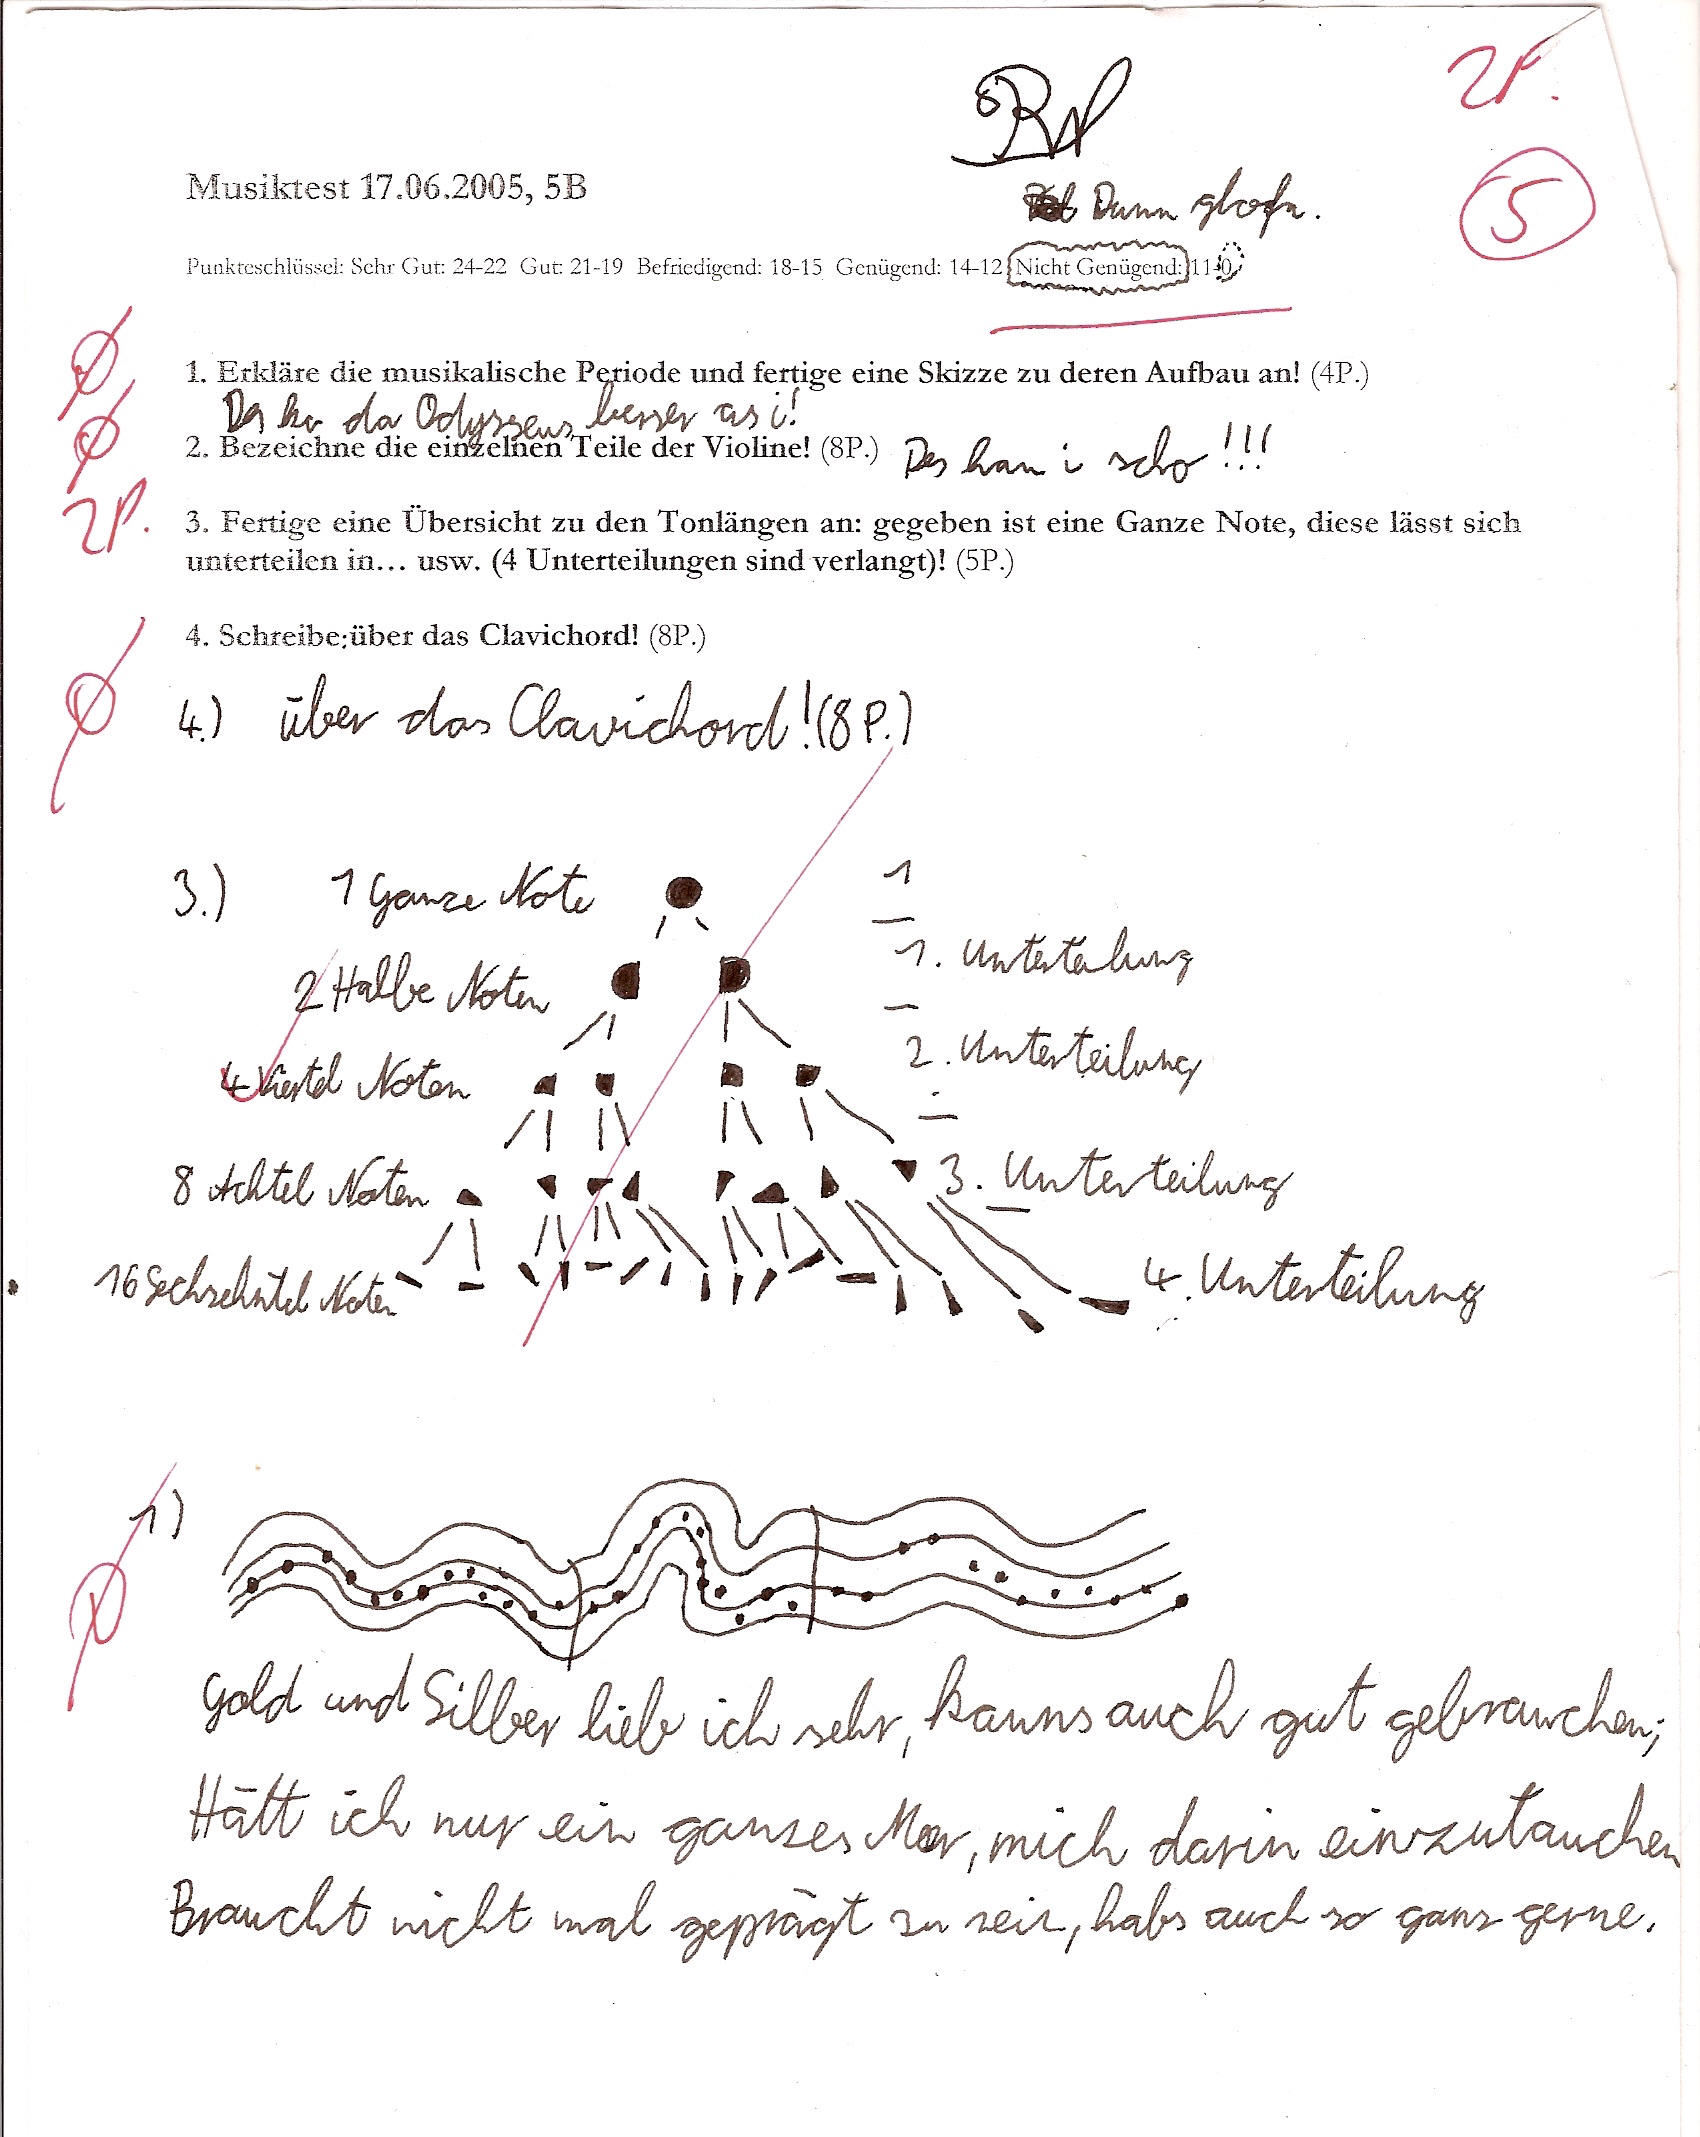 2P.
5
Musiktest 17.06.2005, 5B
Dann
Punkteschlüssel: Sehr Gut: 24-22 Gut: 21-19 Befriedigend: 18-15 Genügend: 14-12 Nicht Genügend: 11-0
1. Erkläre die musikalische Periode und fertige eine Skizze zu deren Aufbau an! (4P.)
Des ko da Odysseus besser as i!
2. Bezeichne die einzelnen Teile der Violine! (8P.) Des han i scho!!!
2P.
3. Fertige eine Übersicht zu den Tonlängen an: gegeben ist eine Ganze Note, diese lässt sich
unterteilen in... usw. (4 Unterteilungen sind verlangt)! (5P.)
4. Schreibe:über das Clavichord! (8P.)
4.) über das Clavichord!(8P.)
3.) 1 Ganze Note 1
1. Unterteilung
2 Halbe Noten
2. Unterteilung
4 Viertel Noten
8 Achtel Noten 3. Unterteilung
16 Sechzehntel Noten 4. Unterteilung
1)
Gold und Silber lieb ich sehr, kanns auch gut gebrauchen;
Hätt ich nur ein ganzes Meer, mich darin einzutauchen
Braucht nicht mal geprägt zu sein, habs auch so ganz gerne.